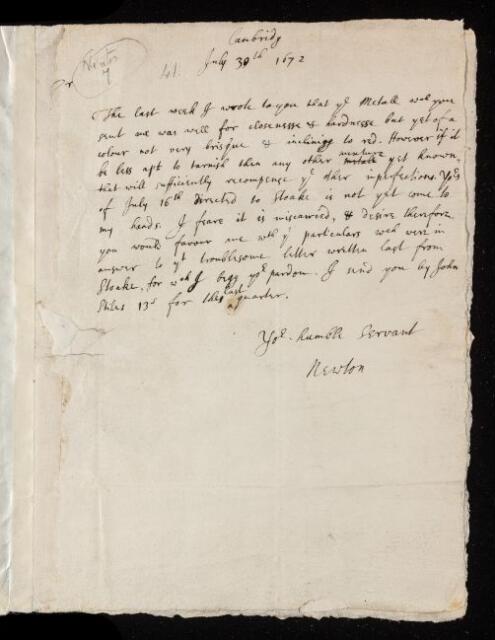 Cambridg
July 30th 1672
Newton
7
41.
Sr
The last week I wrote to you that ye Metall wch you
sent me was well for closenesse & hardnesse but yet of a
colour not very brisque & inclining to red. However if it
be less apt to tarnish then any other mixture yet known,
that will sufficiently recompence ye other imperfections. Yors
of July 16th directed to Stoake is not yet come to
my hands. I feare it is miscarried, & desire therefore
you would favour me wth ye particulars wch were in
answer to yt troublesome letter written last from
Stoake, for wch I begg yor pardon. I send you by John
Stiles 13s for this last quarter.
Yor humble Servant
Newton